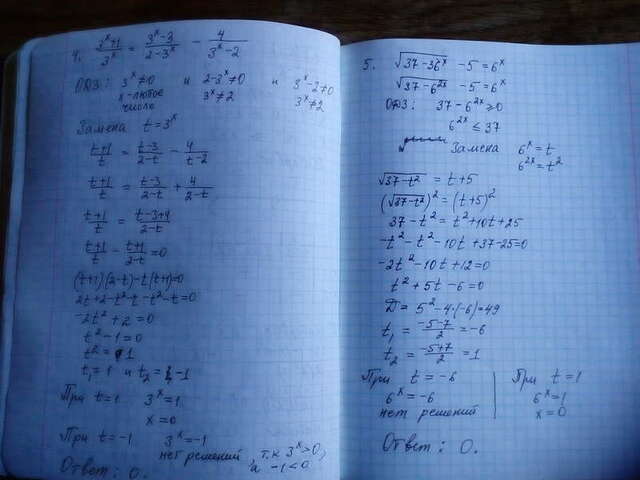 4. (3^x+1)/3^x = (3^x-3)/(2-3^x) - 4/(3^x-2)
ОДЗ: 3^x≠0 и 2-3^x≠0 и 3^x-2≠0
x-любое 3^x≠2 3^x≠2
число
Замена t=3^x
(t+1)/t = (t-3)/(2-t) - 4/(t-2)
(t+1)/t = (t-3)/(2-t) + 4/(2-t)
(t+1)/t = (t-3+4)/(2-t)
(t+1)/t - (t+1)/(2-t) = 0
(t+1)(2-t)-t(t+1)=0
2t+2-t²-t-t²-t=0
-2t²+2=0
t²-1=0
t²=1
t₁=1 и t₂=-1
При t=1 3^x=1
x=0
При t=-1 3^x=-1
нет решений, т.к 3^x>0,
а -1<0
Ответ: 0.
5. √(37-36^x) -5=6^x
√(37-6^(2x)) -5=6^x
ОДЗ: 37-6^(2x)≥0
6^(2x)≤37
Замена 6^x=t
6^(2x)=t²
√(37-t²) = t+5
(√(37-t²))²=(t+5)²
37-t²=t²+10t+25
-t²-t²-10t+37-25=0
-2t²-10t+12=0
t²+5t-6=0
D=5²-4·(-6)=49
t₁=(-5-7)/2=-6
t₂=(-5+7)/2=1
При t=-6
6^x=-6
нет решений
При t=1
6^x=1
x=0
Ответ: 0.